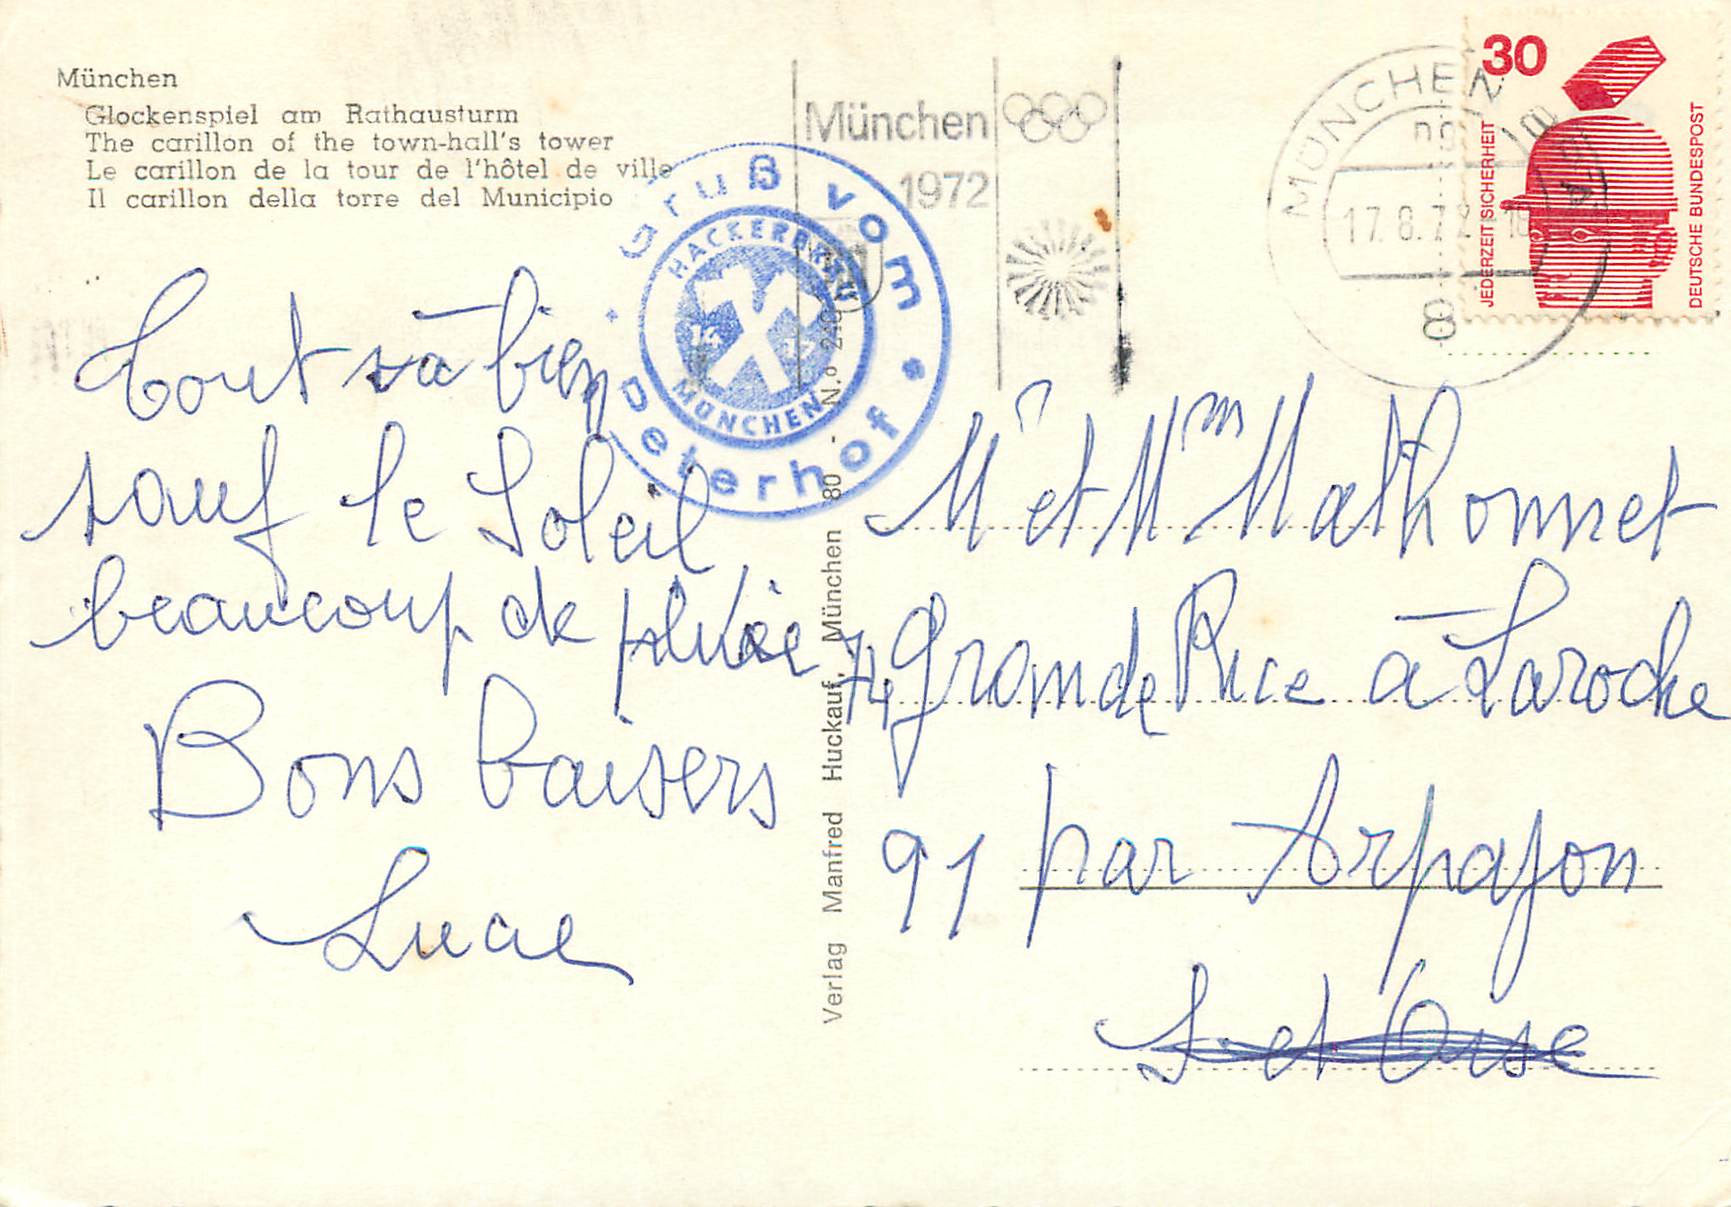 München
Glockenspiel am Rathausturm
The carillon of the town-hall's tower
Le carillon de la tour de l'hôtel de ville
Il carillon della torre del Municipio
Gruß vom
Peterhof
HACKERBRÄU
MÜNCHEN
14 17
München
1972
MÜNCHEN
17.8.72
8
30
JEDERZEIT SICHERHEIT
DEUTSCHE BUNDESPOST
Tout va bien
sauf le Soleil
beaucoup de pluie
Bons baisers
Luce
Verlag Manfred Huckauf, München 80 - N.º 240
Mr et Mme Malhonnet
74 grande Rue à Laroche
91 par Arpajon
S. et Oise